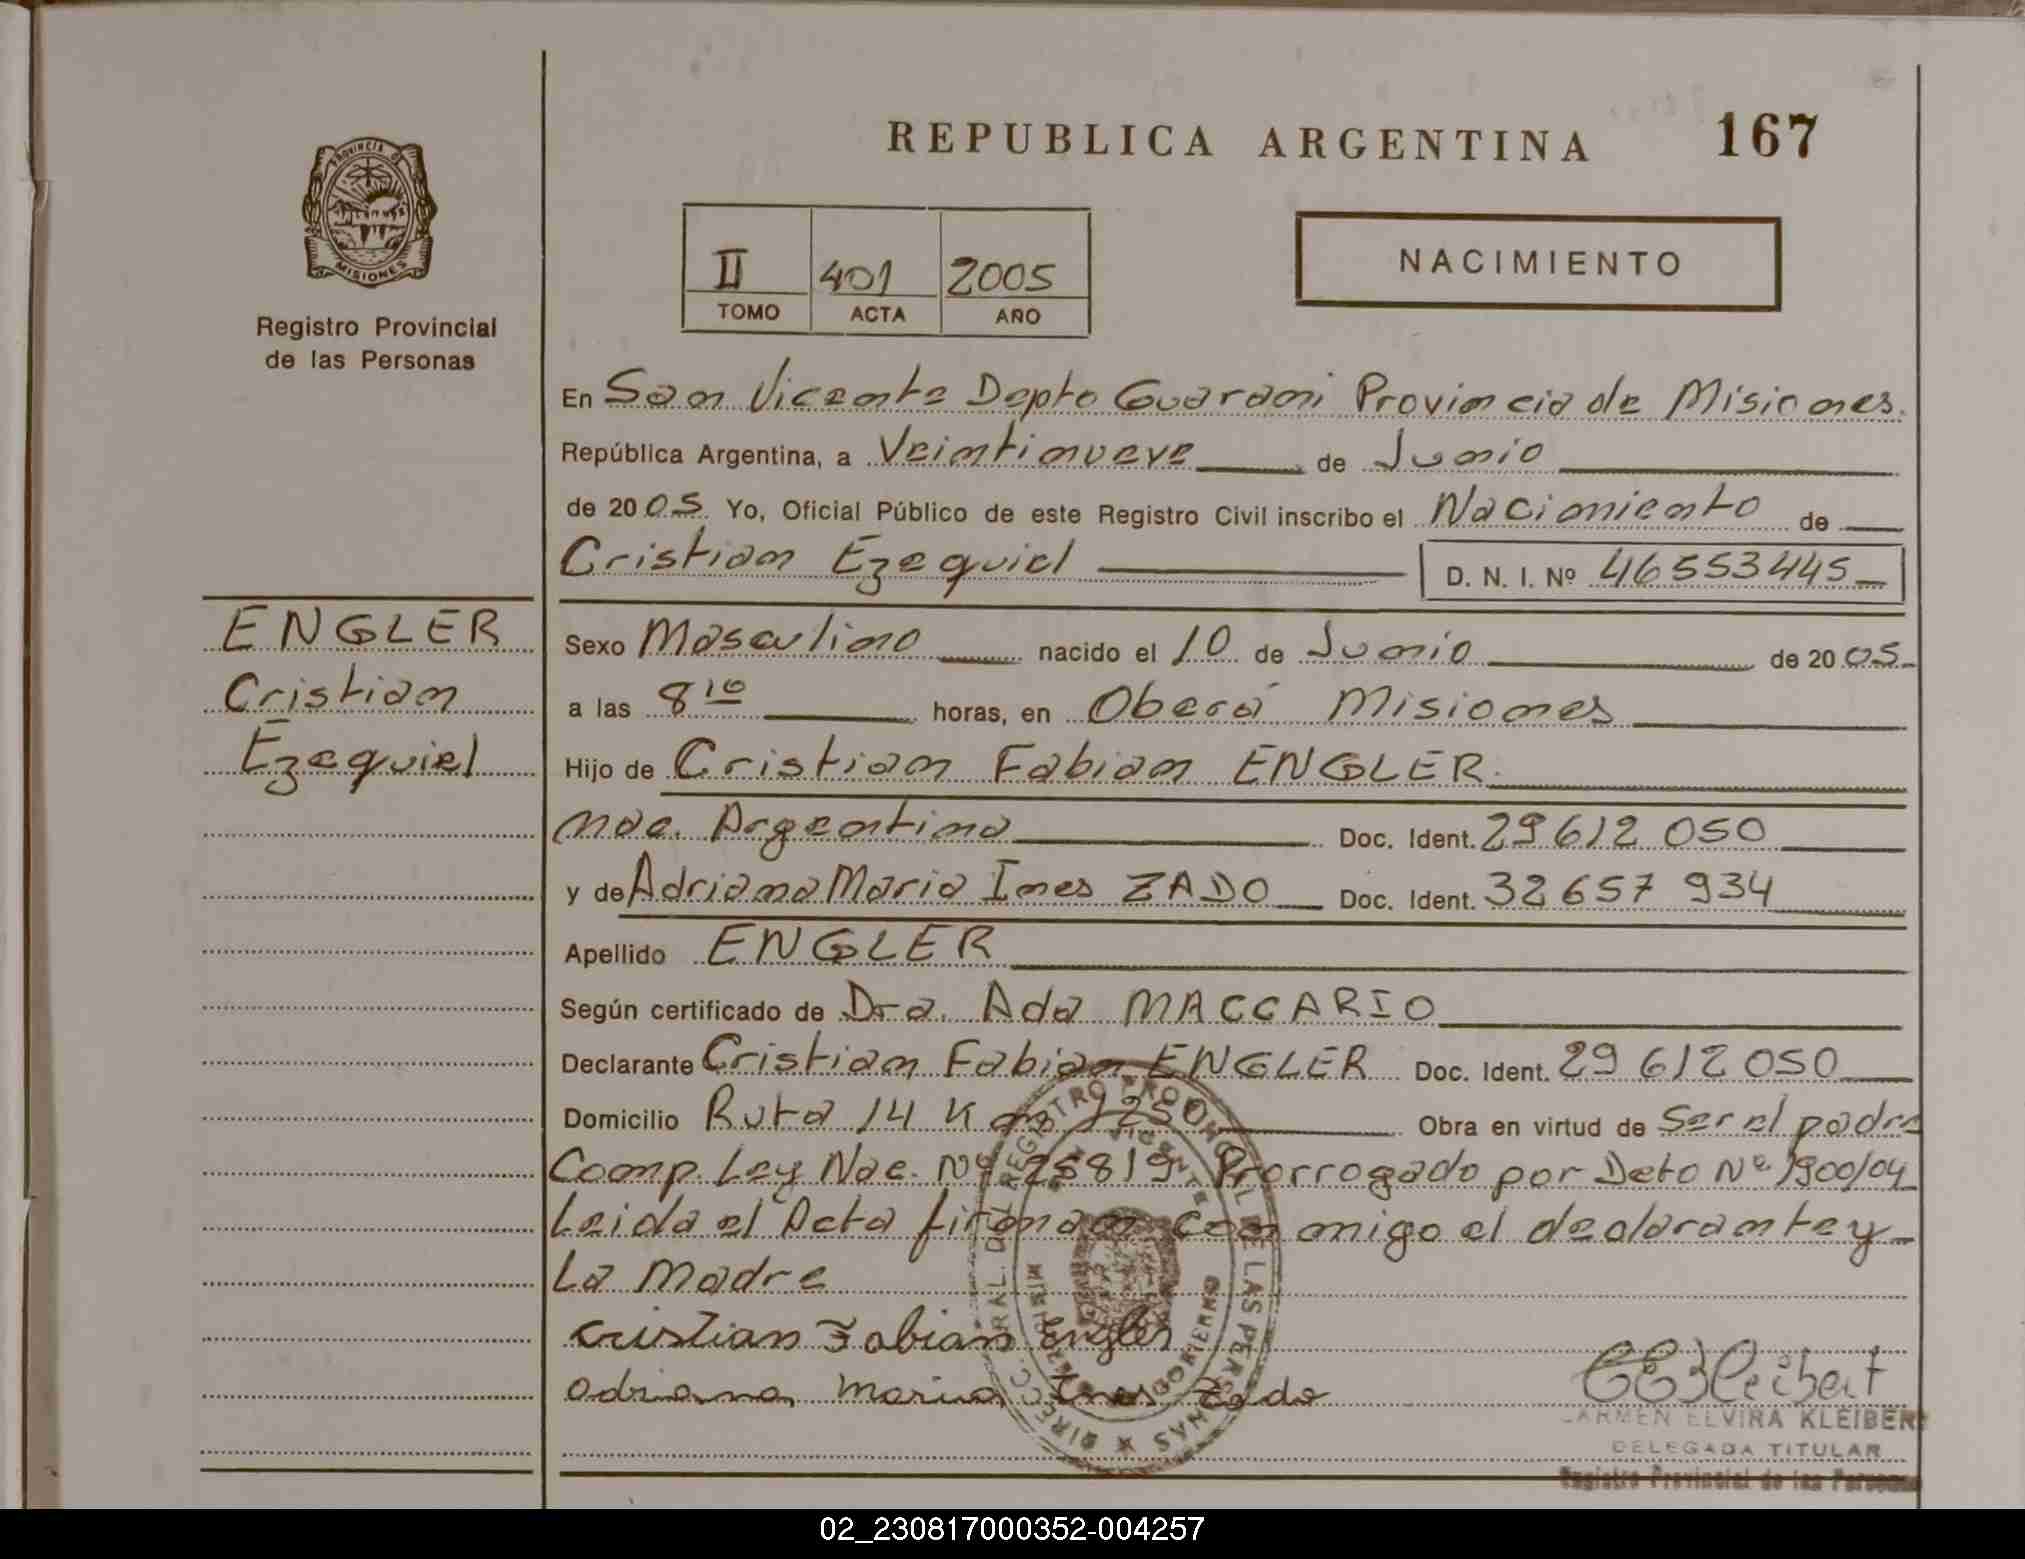 REPUBLICA ARGENTINA 167
PROVINCIA DE
MISIONES
Registro Provincial
de las Personas
II 401 2005
TOMO ACTA AÑO
NACIMIENTO
En San Vicente Depto Guarani Provincia de Misiones.
República Argentina, a Veintinueve de Junio
de 2005. Yo, Oficial Público de este Registro Civil inscribo el Nacimiento de
Cristian Ezequiel D. N. I. Nº 46553445
ENGLER
Cristian
Ezequiel
Sexo Masculino nacido el 10 de Junio de 2005
a las 8 10 horas, en Oberá Misiones
Hijo de Cristian Fabian ENGLER.
Nac. Argentina Doc. Ident. 29612 050
y de Adriana Maria Ines ZADO Doc. Ident. 32657 934
Apellido ENGLER
Según certificado de Dra. Ada MACCARIO
Declarante Cristian Fabian ENGLER Doc. Ident. 29 612 050
Domicilio Ruta 14 Km 1250 Obra en virtud de Ser el padre
Comp. Ley Nac. Nº 25819 Prorrogado por Dcto Nº 1900/04
Leida el Acta firman conmigo el declarante y
La Madre
Cristian Fabian Engler
Adriana Maria Ines Zado
CEKleibert
CARMEN ELVIRA KLEIBERT
DELEGADA TITULAR
Registro Provincial de las Personas
DIRECC. GRAL. DEL REGISTRO PROVINCIAL DE LAS PERSONAS
02_230817000352-004257